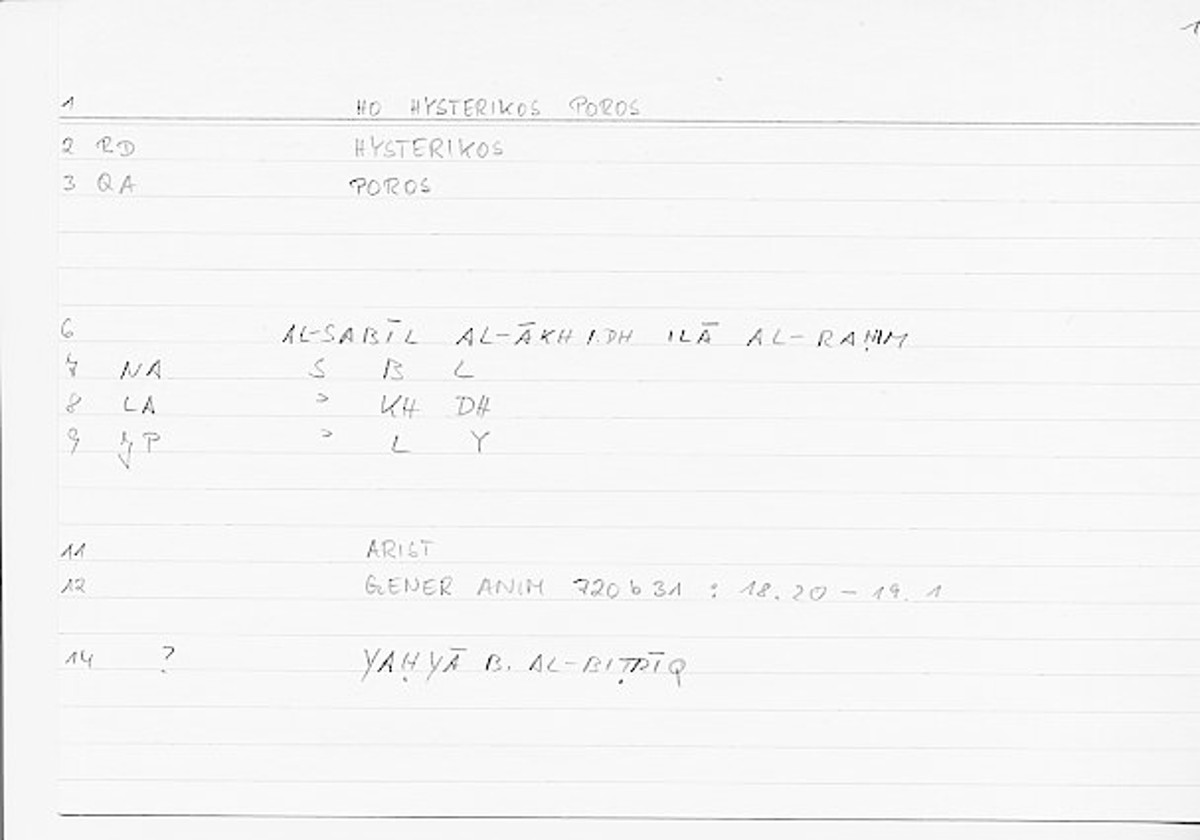 1
1 HO HYSTERIKOS POROS
2 RD HYSTERIKOS
3 QA POROS
6 AL-SABĪL AL-ĀKHIDH ILĀ AL-RAḤIM
7 NA S B L
8 LA ʾ KH DH
9 JP ʾ L Y
11 ARIST
12 GENER ANIM 720 b 31 : 18.20 – 19.1
14 ? YAḤYĀ B. AL-BIṬRĪQ